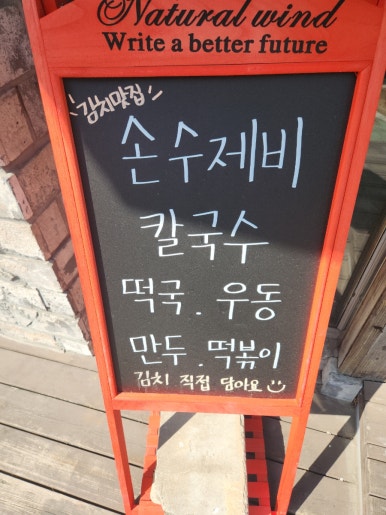 Natural wind
Write a better future
김치맛집
손수제비
칼국수
떡국 . 우동
만두 . 떡볶이
김치 직접 담아요